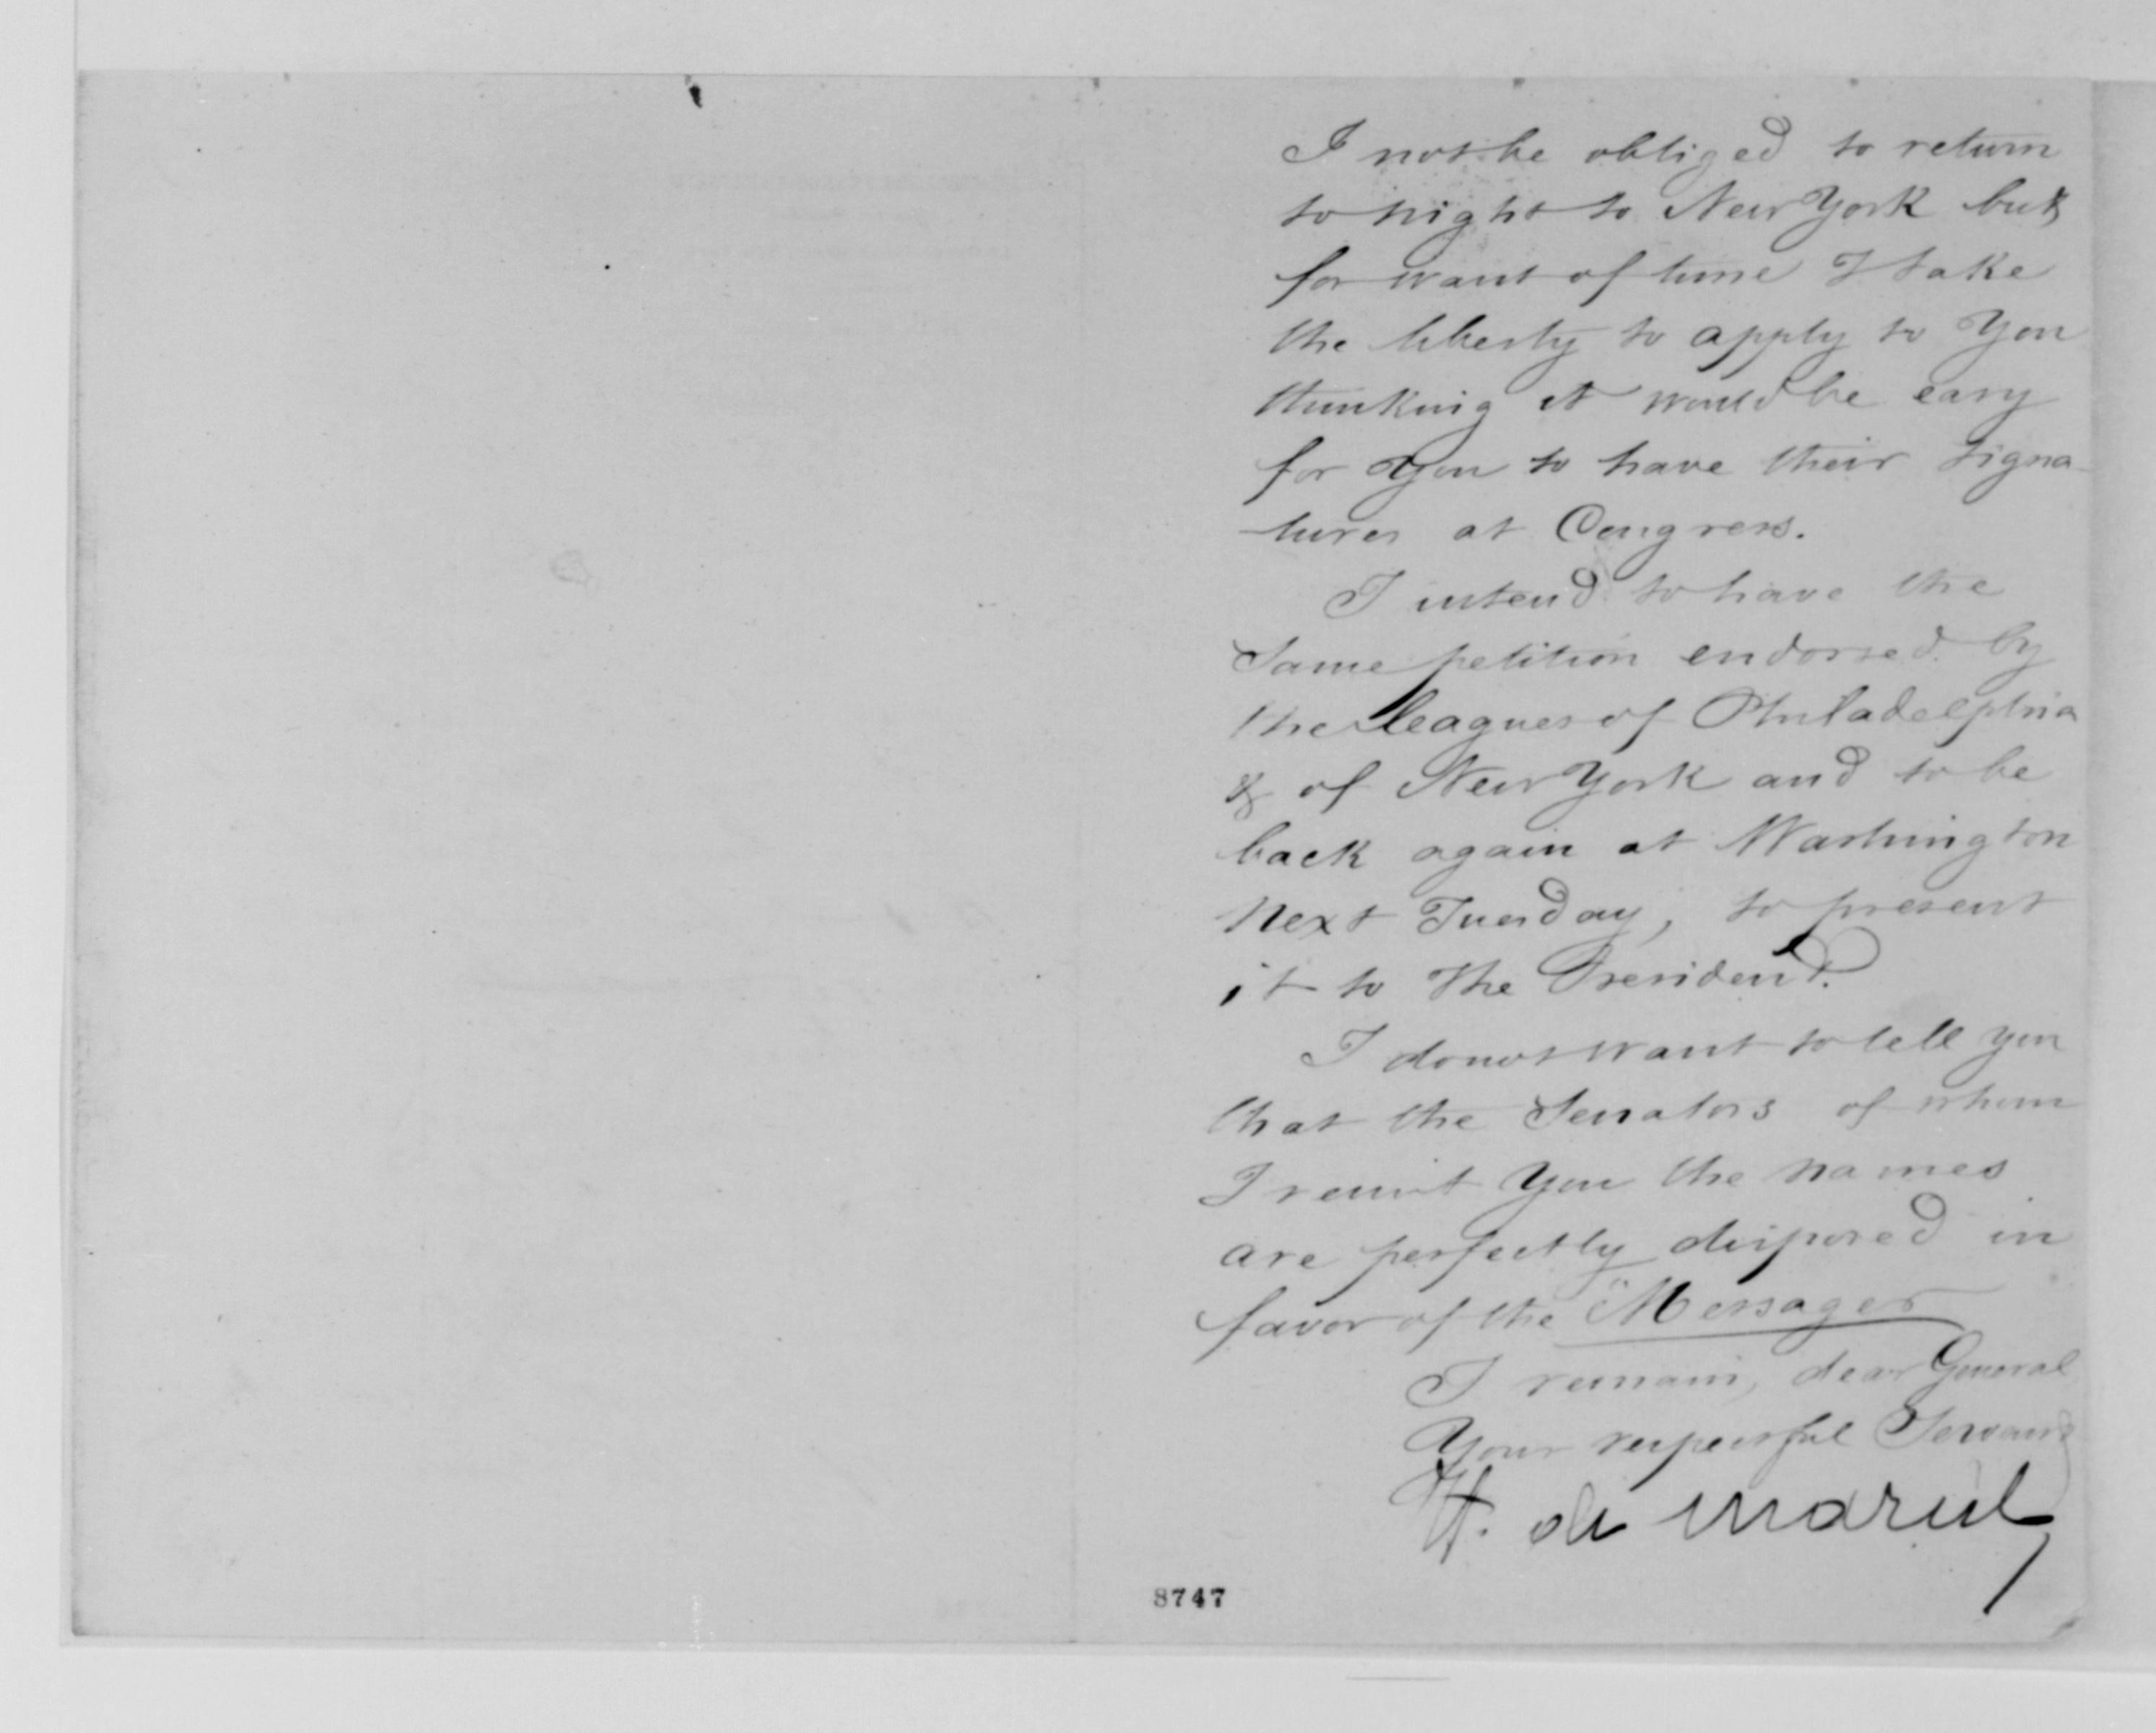 I not be obliged to return
to night to New York but
for want of time I take
the liberty to apply to You
thinking it would be easy
for You to have their signa-
tures at Congress.
I intend to have the
Same petition endorsed by
the leagues of Philadelphia
& of New York and to be
back again at Washington
next Tuesday, to present
it to the President.
I do not want to tell you
that the Senators of whom
I remit You the names
are perfectly disposed in
favor of the "Messager
I remain, dear General
Your respectful Servant
H. de Mareil
8747